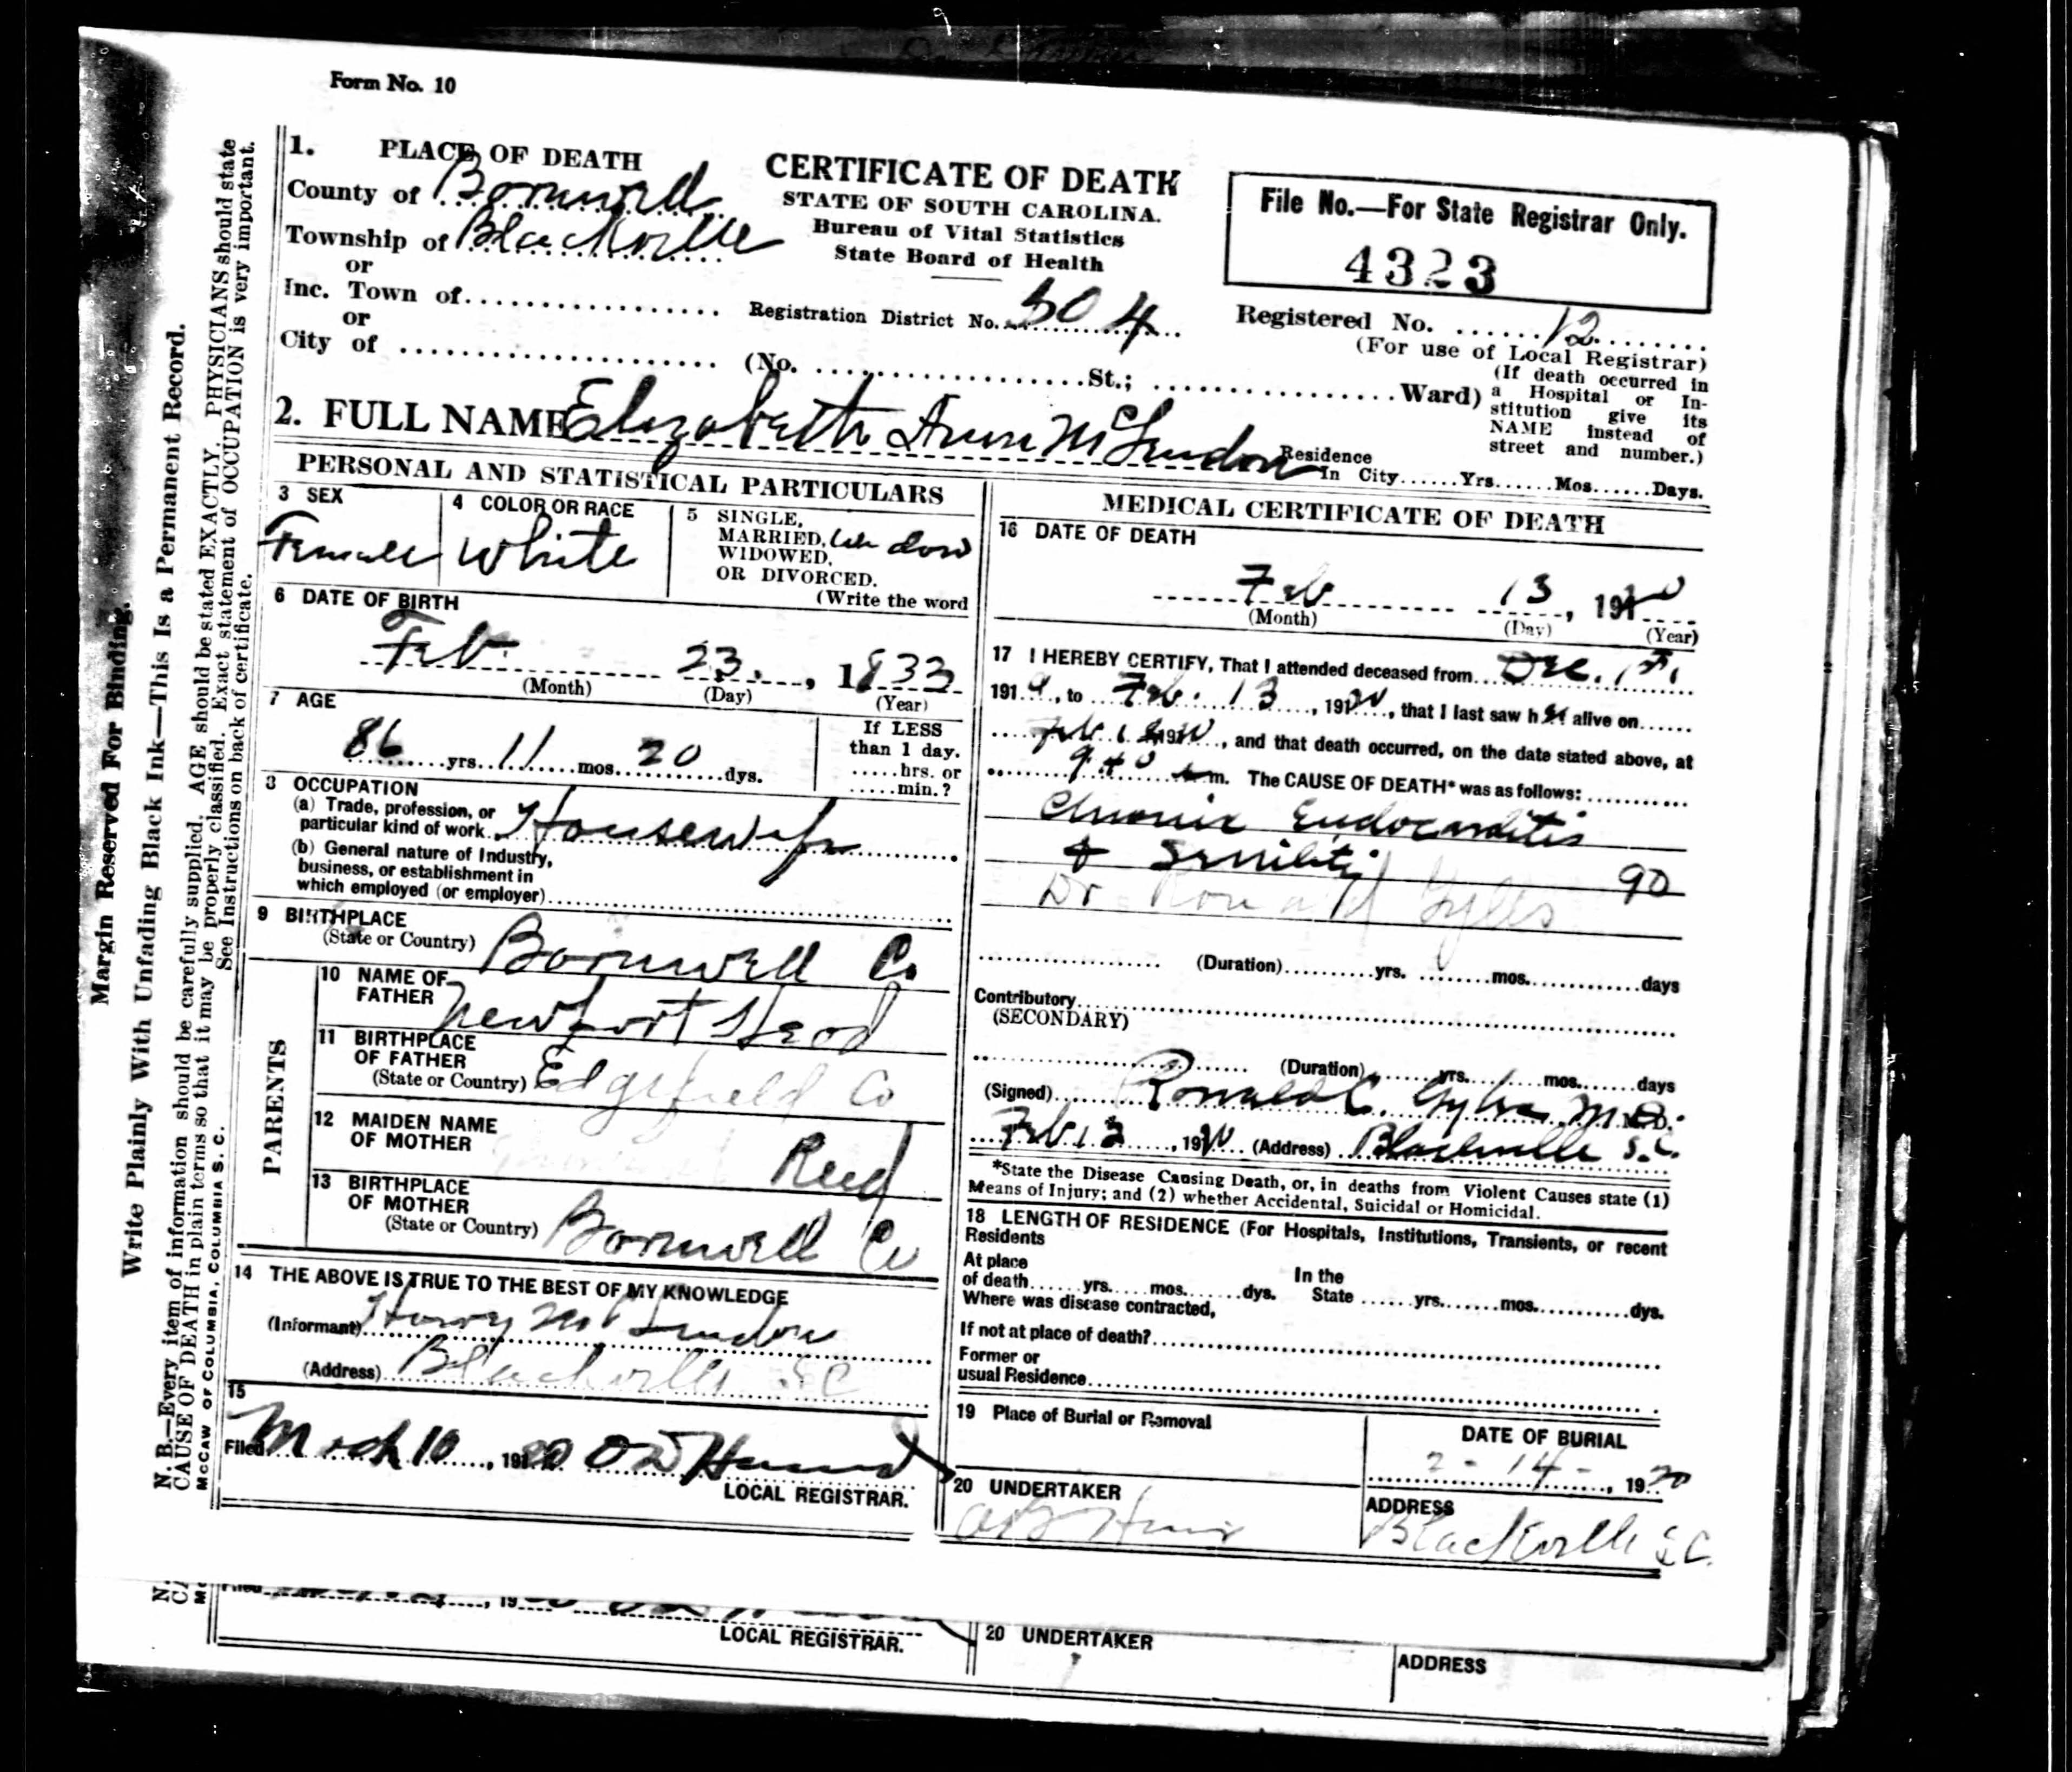 Form No. 10
1. PLACE OF DEATH
County of Barnwell
Township of Blackville
or
Inc. Town of
or
City of
CERTIFICATE OF DEATH
STATE OF SOUTH CAROLINA.
Bureau of Vital Statistics
State Board of Health
Registration District No. 504
(No. St.; Ward)
File No.—For State Registrar Only.
4323
Registered No. 12
(For use of Local Registrar)
(If death occurred in
a Hospital or In-
stitution give its
NAME instead of
street and number.)
2. FULL NAME Elizabeth Ann McLendon
Residence
In City......Yrs......Mos......Days.
PERSONAL AND STATISTICAL PARTICULARS
3 SEX
Female
4 COLOR OR RACE
White
5 SINGLE,
MARRIED, Widow
WIDOWED,
OR DIVORCED.
(Write the word
6 DATE OF BIRTH
Feb 23, 1833
(Month) (Day) (Year)
7 AGE
86 yrs. 11 mos. 20 dys.
If LESS
than 1 day.
.....hrs. or
.....min.?
8 OCCUPATION
(a) Trade, profession, or
particular kind of work Housewife
(b) General nature of Industry,
business, or establishment in
which employed (or employer)
9 BIRTHPLACE
(State or Country) Barnwell Co
PARENTS
10 NAME OF
FATHER Newport Head
11 BIRTHPLACE
OF FATHER
(State or Country) Edgefield Co
12 MAIDEN NAME
OF MOTHER Reed
13 BIRTHPLACE
OF MOTHER
(State or Country) Barnwell Co
14 THE ABOVE IS TRUE TO THE BEST OF MY KNOWLEDGE
(Informant) Henry McLendon
(Address) Blackville SC
15
Filed March 10, 1920 O D
LOCAL REGISTRAR.
MEDICAL CERTIFICATE OF DEATH
16 DATE OF DEATH
Feb 13, 1920
(Month) (Day) (Year)
17 I HEREBY CERTIFY, That I attended deceased from Dec. 1st,
1919, to Feb. 13, 1920, that I last saw her alive on
Feb 1920, and that death occurred, on the date stated above, at
940 m. The CAUSE OF DEATH* was as follows:
Chronic Endocarditis
+ Senility 90
Dr Ronald Gyles
(Duration) yrs. mos. days
Contributory
(SECONDARY)
(Duration) yrs. mos. days
(Signed) Ronald C. Gyles M.D.
Feb 13, 1920 (Address) Blackville S.C.
*State the Disease Causing Death, or, in deaths from Violent Causes state (1)
Means of Injury; and (2) whether Accidental, Suicidal or Homicidal.
18 LENGTH OF RESIDENCE (For Hospitals, Institutions, Transients, or recent
Residents
At place
of death......yrs.....mos......dys. In the
State......yrs......mos......dys.
Where was disease contracted,
If not at place of death?
Former or
usual Residence
19 Place of Burial or Removal
DATE OF BURIAL
2-14-, 1920
20 UNDERTAKER
ADDRESS
Blackville S.C.
Margin Reserved For Binding.
Write Plainly With Unfading Black Ink—This Is a Permanent Record.
N. B.—Every item of information should be carefully supplied. AGE should be stated EXACTLY. PHYSICIANS should state
CAUSE OF DEATH in plain terms so that it may be properly classified. Exact statement of OCCUPATION is very important.
See Instructions on back of certificate.
McCAW OF COLUMBIA, COLUMBIA S. C.
LOCAL REGISTRAR.
20 UNDERTAKER
ADDRESS